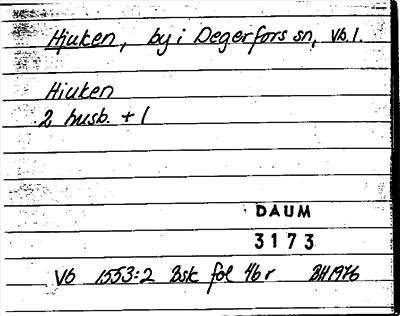 Hjuken, by i Degerfors sn, Vb.l.
Hiuken
2 husb. + 1
DAUM
3173
VB 1553:2 Bsk fol 46 r BH 1976